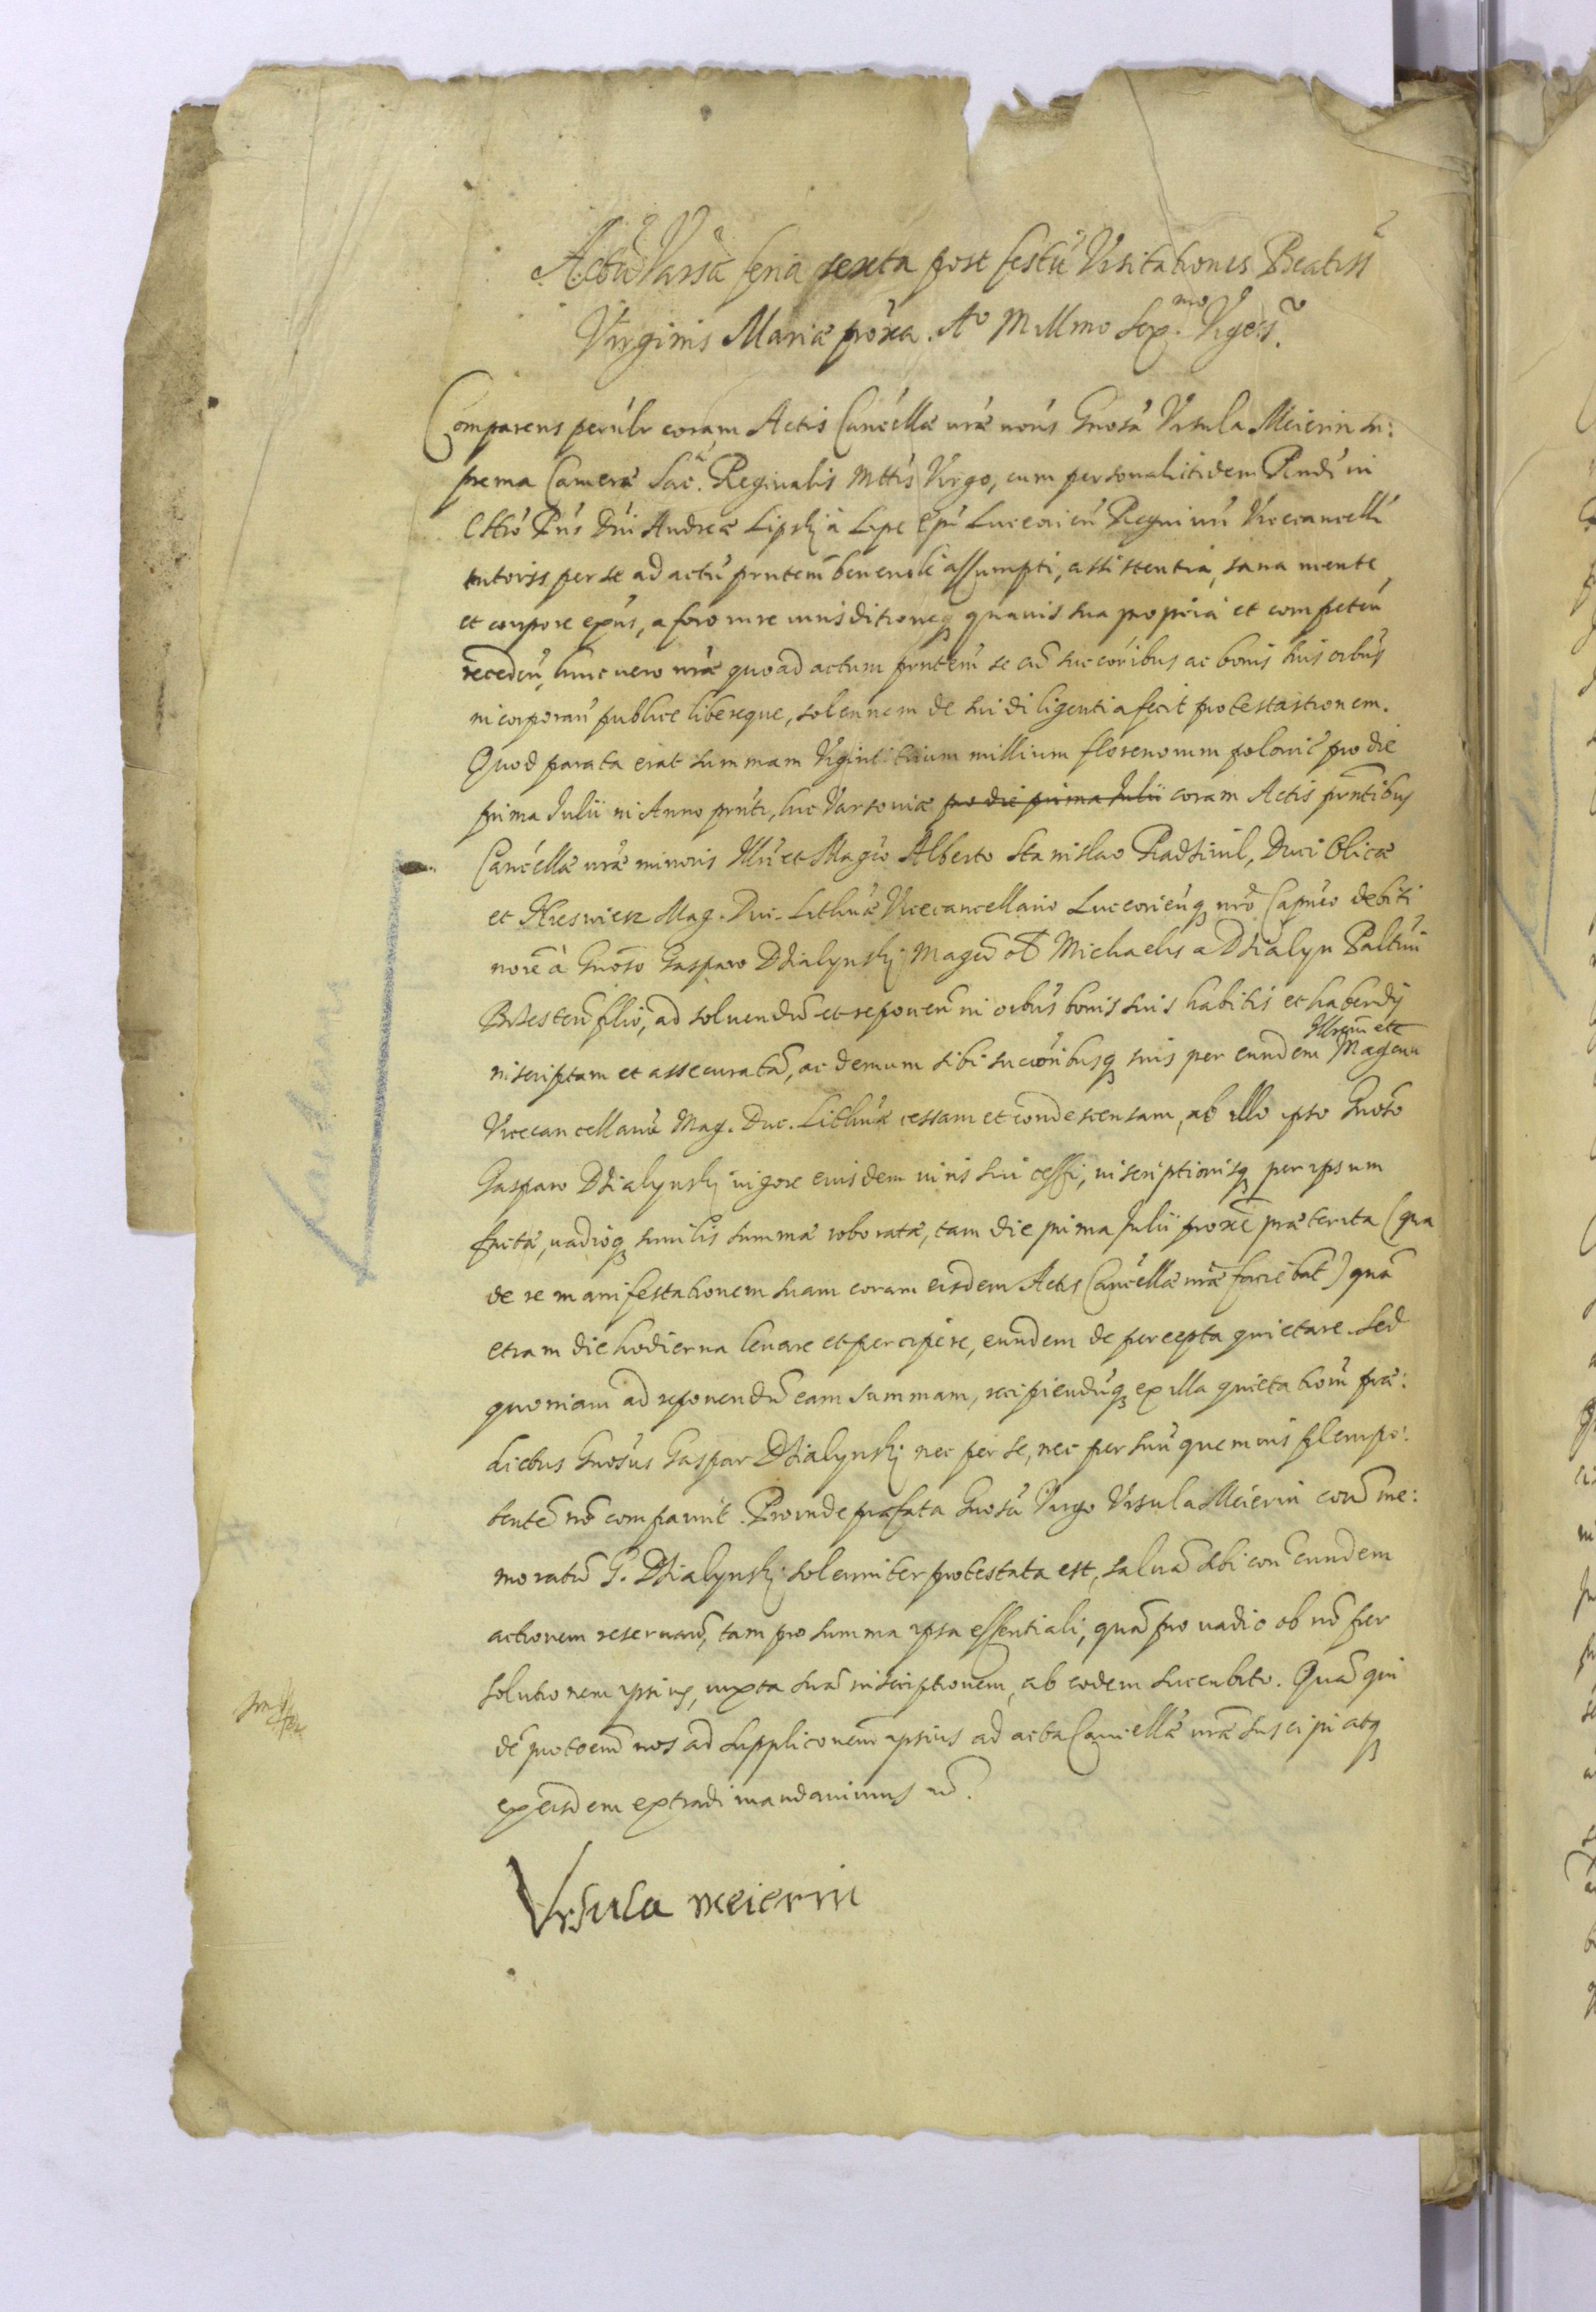 Actũ Varsã feria sexta post festũ Visitationis Beatiss
Virginis Mariæ proxa. Aº Millmo Sex.mo Viges.º
Comparens perulr coram Actis Cancellæ nræ noris Gnosa Vrsula Meierin su:
prema Cameræ Sac. Reginalis Mttis Virgo, cum personali itidem Rendi in
Chro Pris Dni Andreæ Lipski à Lipe Epi Luceorien Regni nri Vicecancellri
tutoris per se ad actũ prntem beneuole assumpti, assistentia, sana mente,
et corpore exns, a foro iure iurisditioneq quauis sua propria et competen
receden, huic vero nræ quoad actum prntem se cũ succoribus ac bonis suis oibus
incorporan publice libereque, solennem de sui diligentia fecit protestastionem.
Quod parata erat summam Viginti trium millium florenorum polonic pro die
prima Julii in Anno prnti, huc Varsoviæ pro die prima Julii coram Actis prntibus
Cancellæ nræ minoris Illri et Magco Alberto Stanislao Radziuil, Duci Olicæ
et Nieswiez Mag. Duc. Lithuæ Vicecancellario Luceorienq nro Capneo debiti
noie à Gnoso Gasparo Dzialynski Magci oĩ Michaelis a Dzialyn Paltini
Brzesten filio, ad soluendũ et reponen in oibus bonis suis habitis et habendis
inscriptam et assecuratã, ac demum sibi succoribusq suis per eundem Illrem et Magcum
Vicecancellariũ Mag. Duc. Lithuæ cessam et condescensam, ab illo ipso Gnoso
Gasparo Dzialynski vigore eiusdem iuris sui cessi, inscriptionisq per ipsum
factæ, vadioq similis summæ roboratæ, tam die prima Julii proxe præterita (qua
de re manifestationem suam coram eisdem Actis Cancellæ nræ faciebat) quã
etiam die hodierna leuare et percipere, eundem de percepta quietare. Sed
quoniam ad reponendũ eam summam, recipiendũq ex illa quietationẽ præ:
dictus Gnosus Gaspar Dzialynski nec per se, nec per suũ quemuis plenipo:
tentẽ nõ comparuit. Proinde præfata Gnosa Virgo Vrsula Meierin corã me:
moratũ G. Dzialynski solenniter protestata est, saluã sibi con eundem
actionem reseruan, tam pro summa ipsa essentiali, quã pro vadio ob nõ per
solutionem ipsius, iuxta suã inscriptionem, ab eodem succubito. Quã qui
dẽ protoem nos ad supplicõnem ipsius ad acta Cancellæ nræ suscipi atq
ex eisdem extradi mandauimus
Vrsula meierin